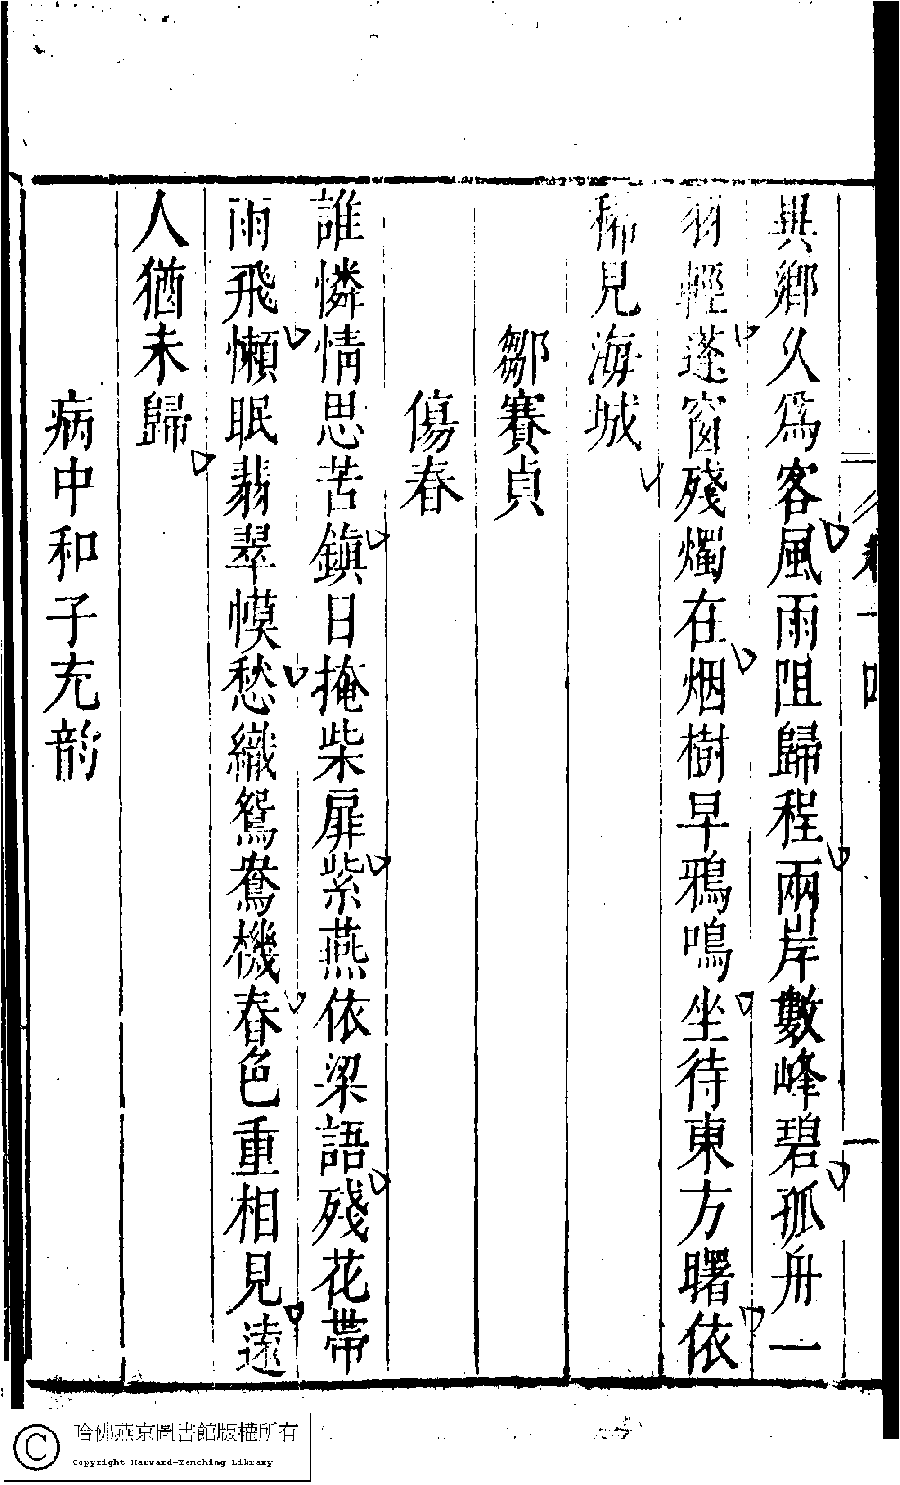 異鄉久爲客風雨阻歸程兩岸數峰碧孤舟一
羽輕蓬窗殘燭在烟樹早鴉鳴坐待東方曙依
稀見海城
鄒賽貞
傷春
誰憐情思苦鎮日掩柴扉紫燕依梁語殘花帶
雨飛懶眠翡翠幙愁織鴛鴦機春色重相見遠
人猶未歸
病中和子充韵
哈佛燕京圖書館版權所有
Copyright Harvard-Yenching Library